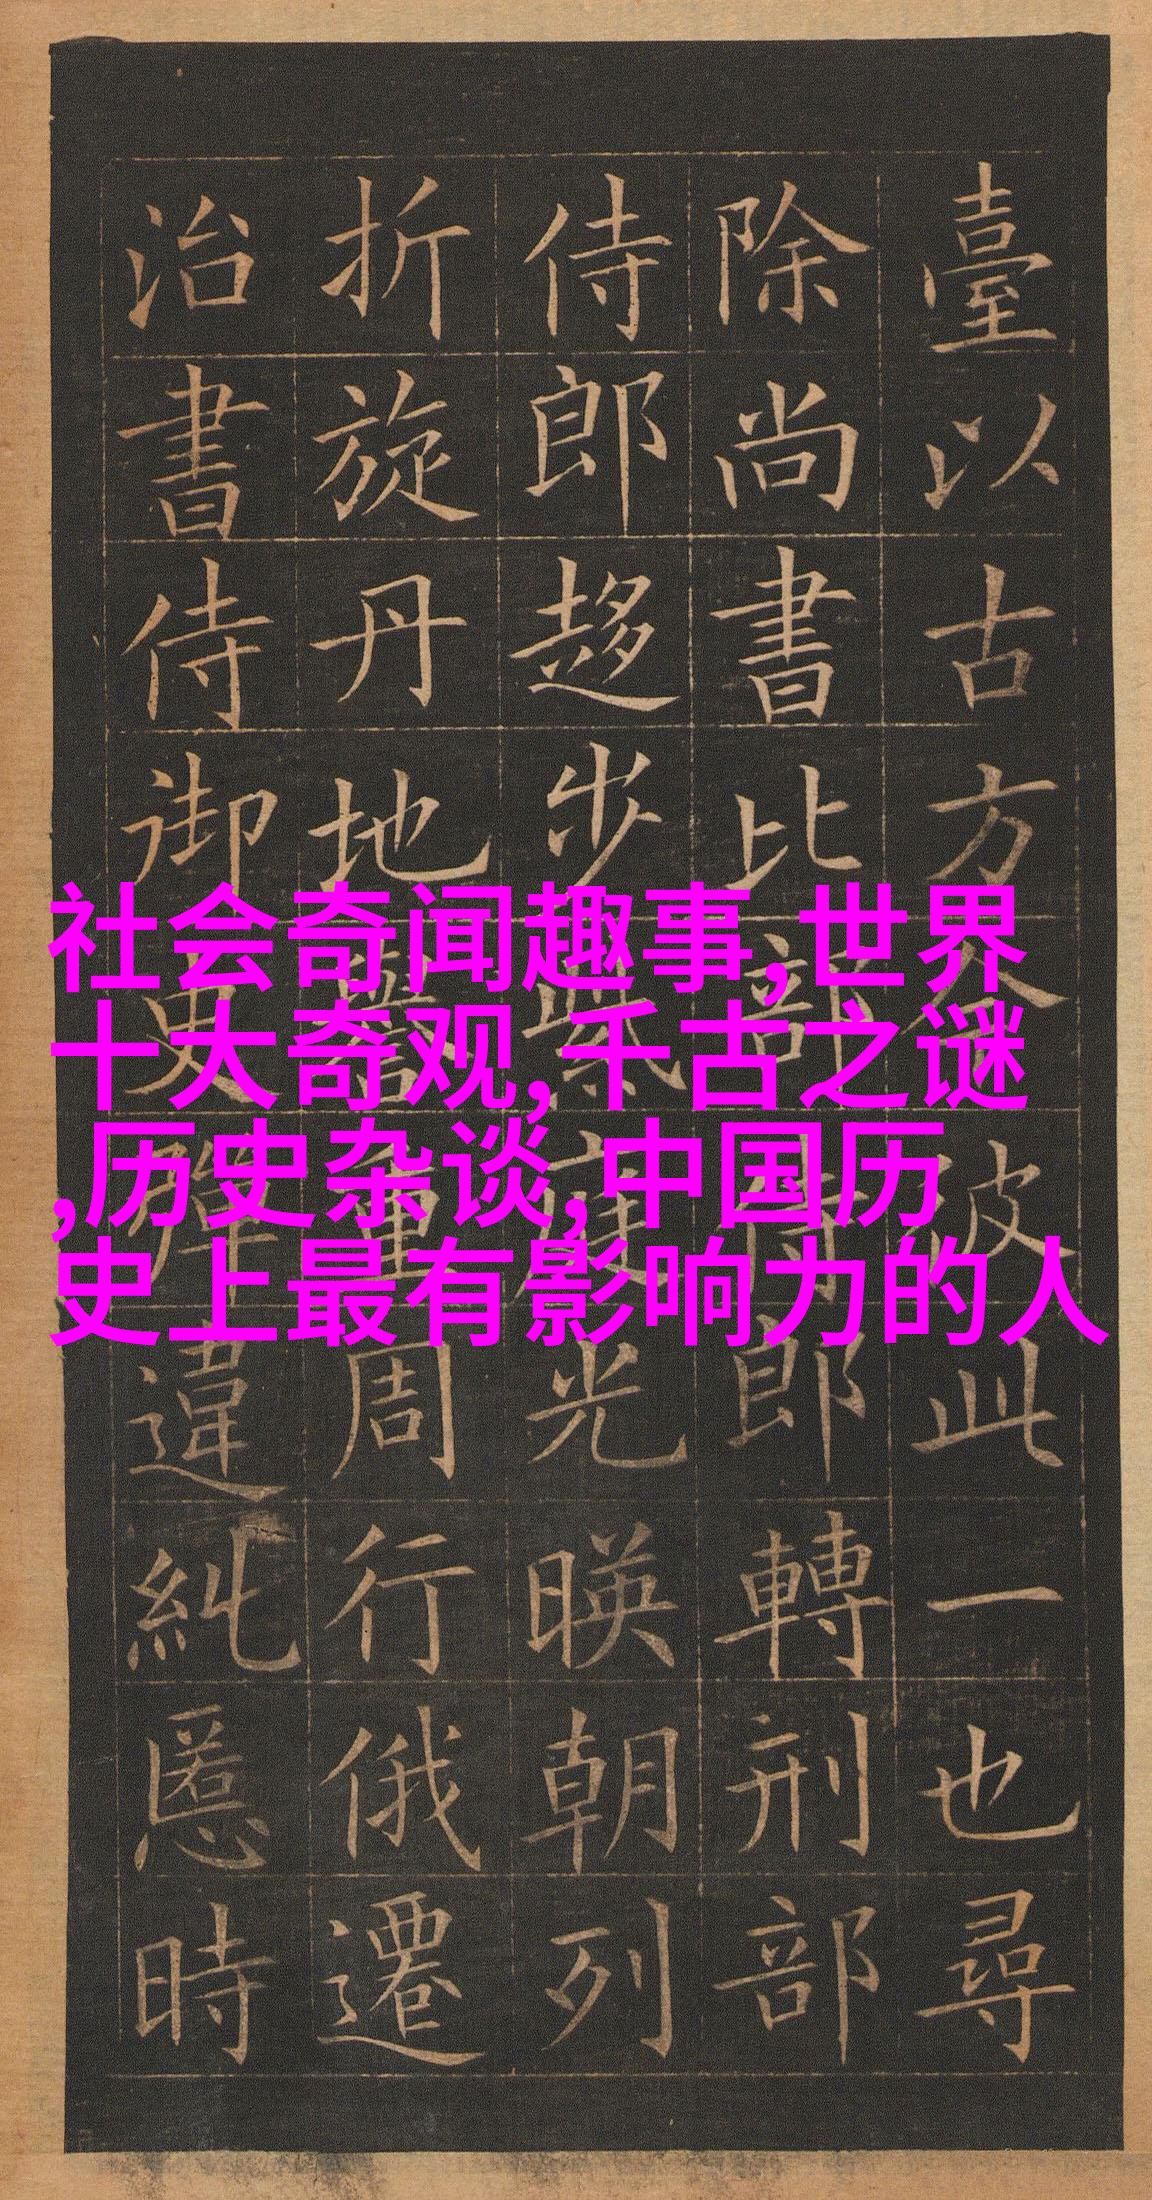 臺以古方今彼此一也尋
除尚書比部侍郎轉刑部
侍郎趍步紫庭光暎朝列
折旋丹地譽重周行俄遷
治書侍御史彈違糺慝時
社会奇闻趣事,世界
十大奇观,千古之谜
,历史杂谈,中国历
史上最有影响力的人